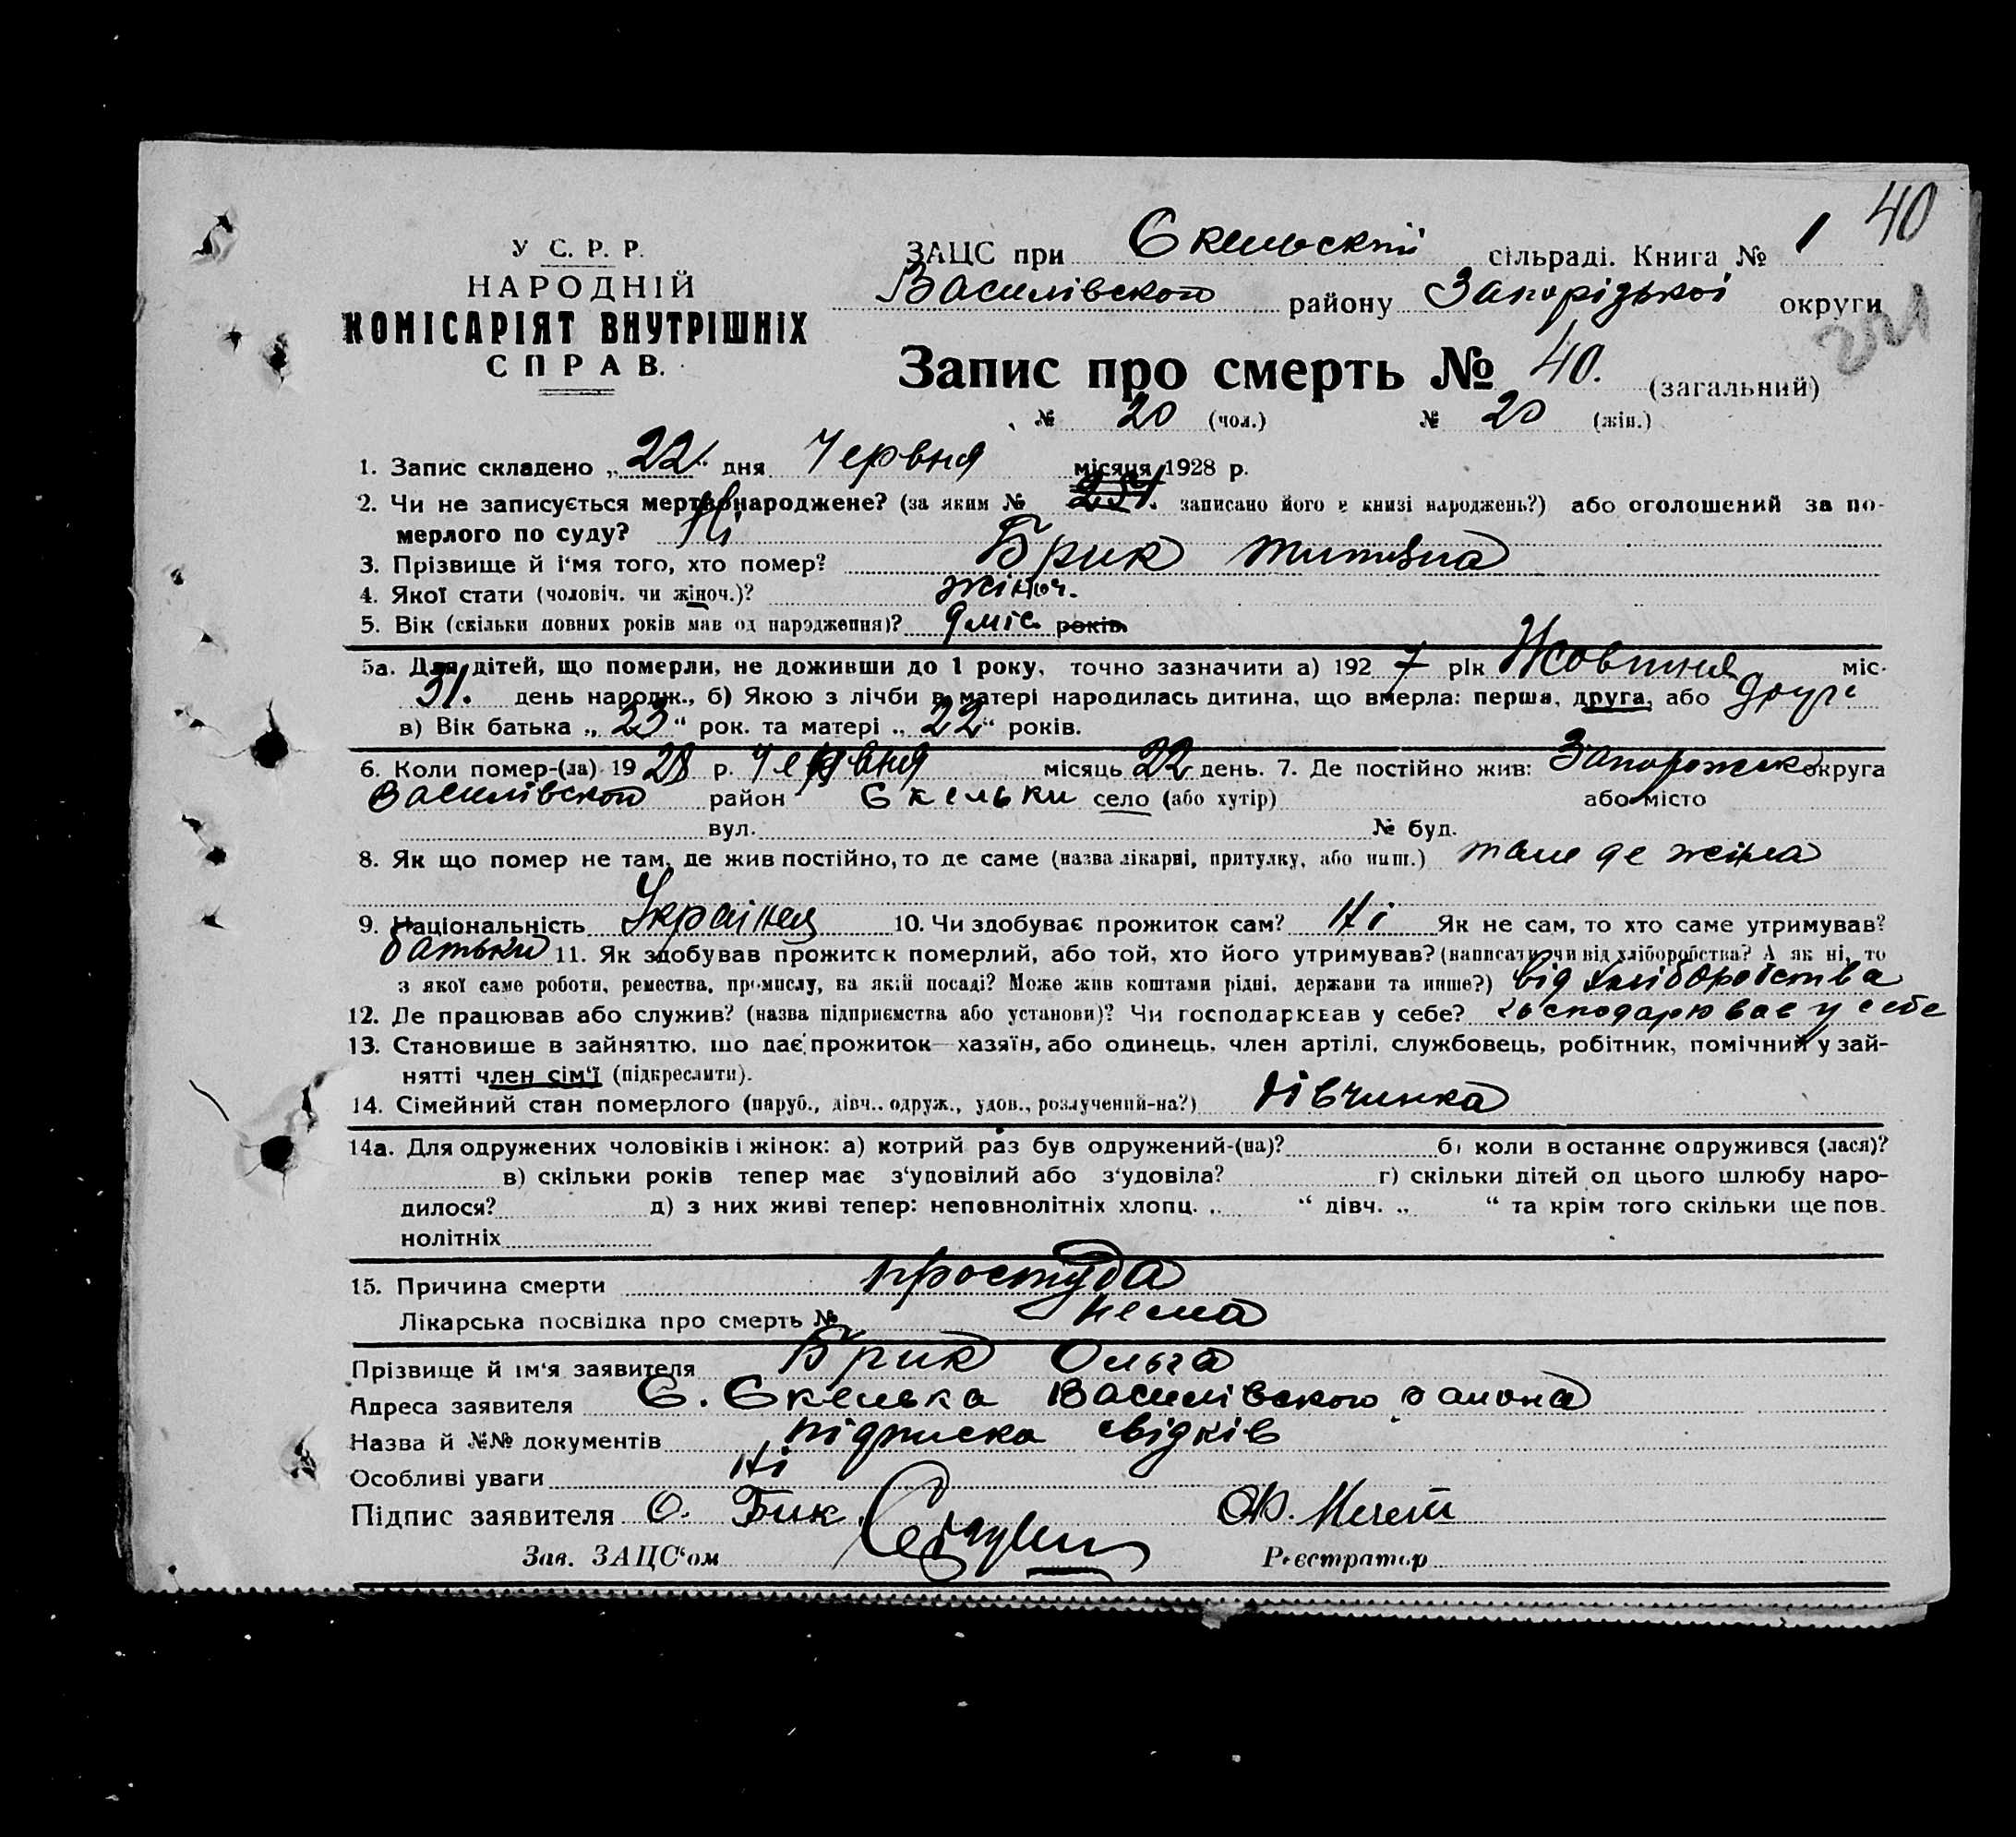 40
У С. Р. Р.
НАРОДНІЙ
КОМІСАРІЯТ ВНУТРІШНІХ
СПРАВ.
ЗАЦС при Скельскій сільраді. Книга № 1
Василівского району Запорізької округи
201
Запис про смерть № 40. (загальний)
№ 20 (чол.) № 20 (жін.)
1. Запис складено „22" дня Червня місяця 1928 р.
2. Чи не записується мертвонароджене? (за яким № 251. записано його в книзі народжень?) або оголошений за по-
мерлого по суду? Ні
3. Прізвище й і'мя того, хто помер? Брик
4. Якої стати (чоловіч. чи жіноч.)? жіноч.
5. Вік (скільки повних років мав од народження)? 9 міс. років
5а. Для дітей, що померли, не доживши до 1 року, точно зазначити а) 1927 рік Жовтня міс.
31. день народж., б) Якою з лічби в матері народилась дитина, що вмерла: перша, друга, або друге
в) Вік батька „23" рок. та матері „22" років.
6. Коли помер-(ла) 1928 р. Червня місяць 22 день. 7. Де постійно жив: Запорожско округа
Василівского район Скельки село (або хутір) або місто
вул. № буд.
8. Як що помер не там, де жив постійно, то де саме (назва лікарні, притулку, або инш.) там де жила
9. Національність Українка 10. Чи здобуває прожиток сам? Ні Як не сам, то хто саме утримував?
батьки 11. Як здобував прожиток померлий, або той, хто його утримував? (написати чи від хліборобства? А як ні, то
з якої саме роботи, ремества, промислу, на якій посаді? Може жив коштами рідні, держави та инше?) від хліборобства
12. Де працював або служив? (назва підприємства або установи)? Чи господарював у себе? господарював у себе
13. Становише в зайняттю, що дає прожиток—хазяїн, або одинець, член артілі, службовець, робітник, помічний у зай-
нятті член сім'ї (підкреслити).
14. Сімейний стан померлого (паруб., дівч., одруж., удов., розлучений-на?) дівчинка
14а. Для одружених чоловіків і жінок: а) котрий раз був одружений-(на)? б) коли в останнє одружився (лася)?
в) скільки років тепер має з'удовілий або з'удовіла? г) скільки дітей од цього шлюбу наро-
дилося? д) з них живі тепер: неповнолітніх хлопц. „ " дівч. „ " та крім того скільки ще пов.
нолітніх
15. Причина смерти простуда
Лікарська посвідка про смерть № нема
Прізвище й ім'я заявителя Брик Ольга
Адреса заявителя С. Скелька Василівского району
Назва й №№ документів підписка свідків
Особливі уваги Ні
Підпис заявителя О. Бик
Зав. ЗАЦС'ом Реєстратор